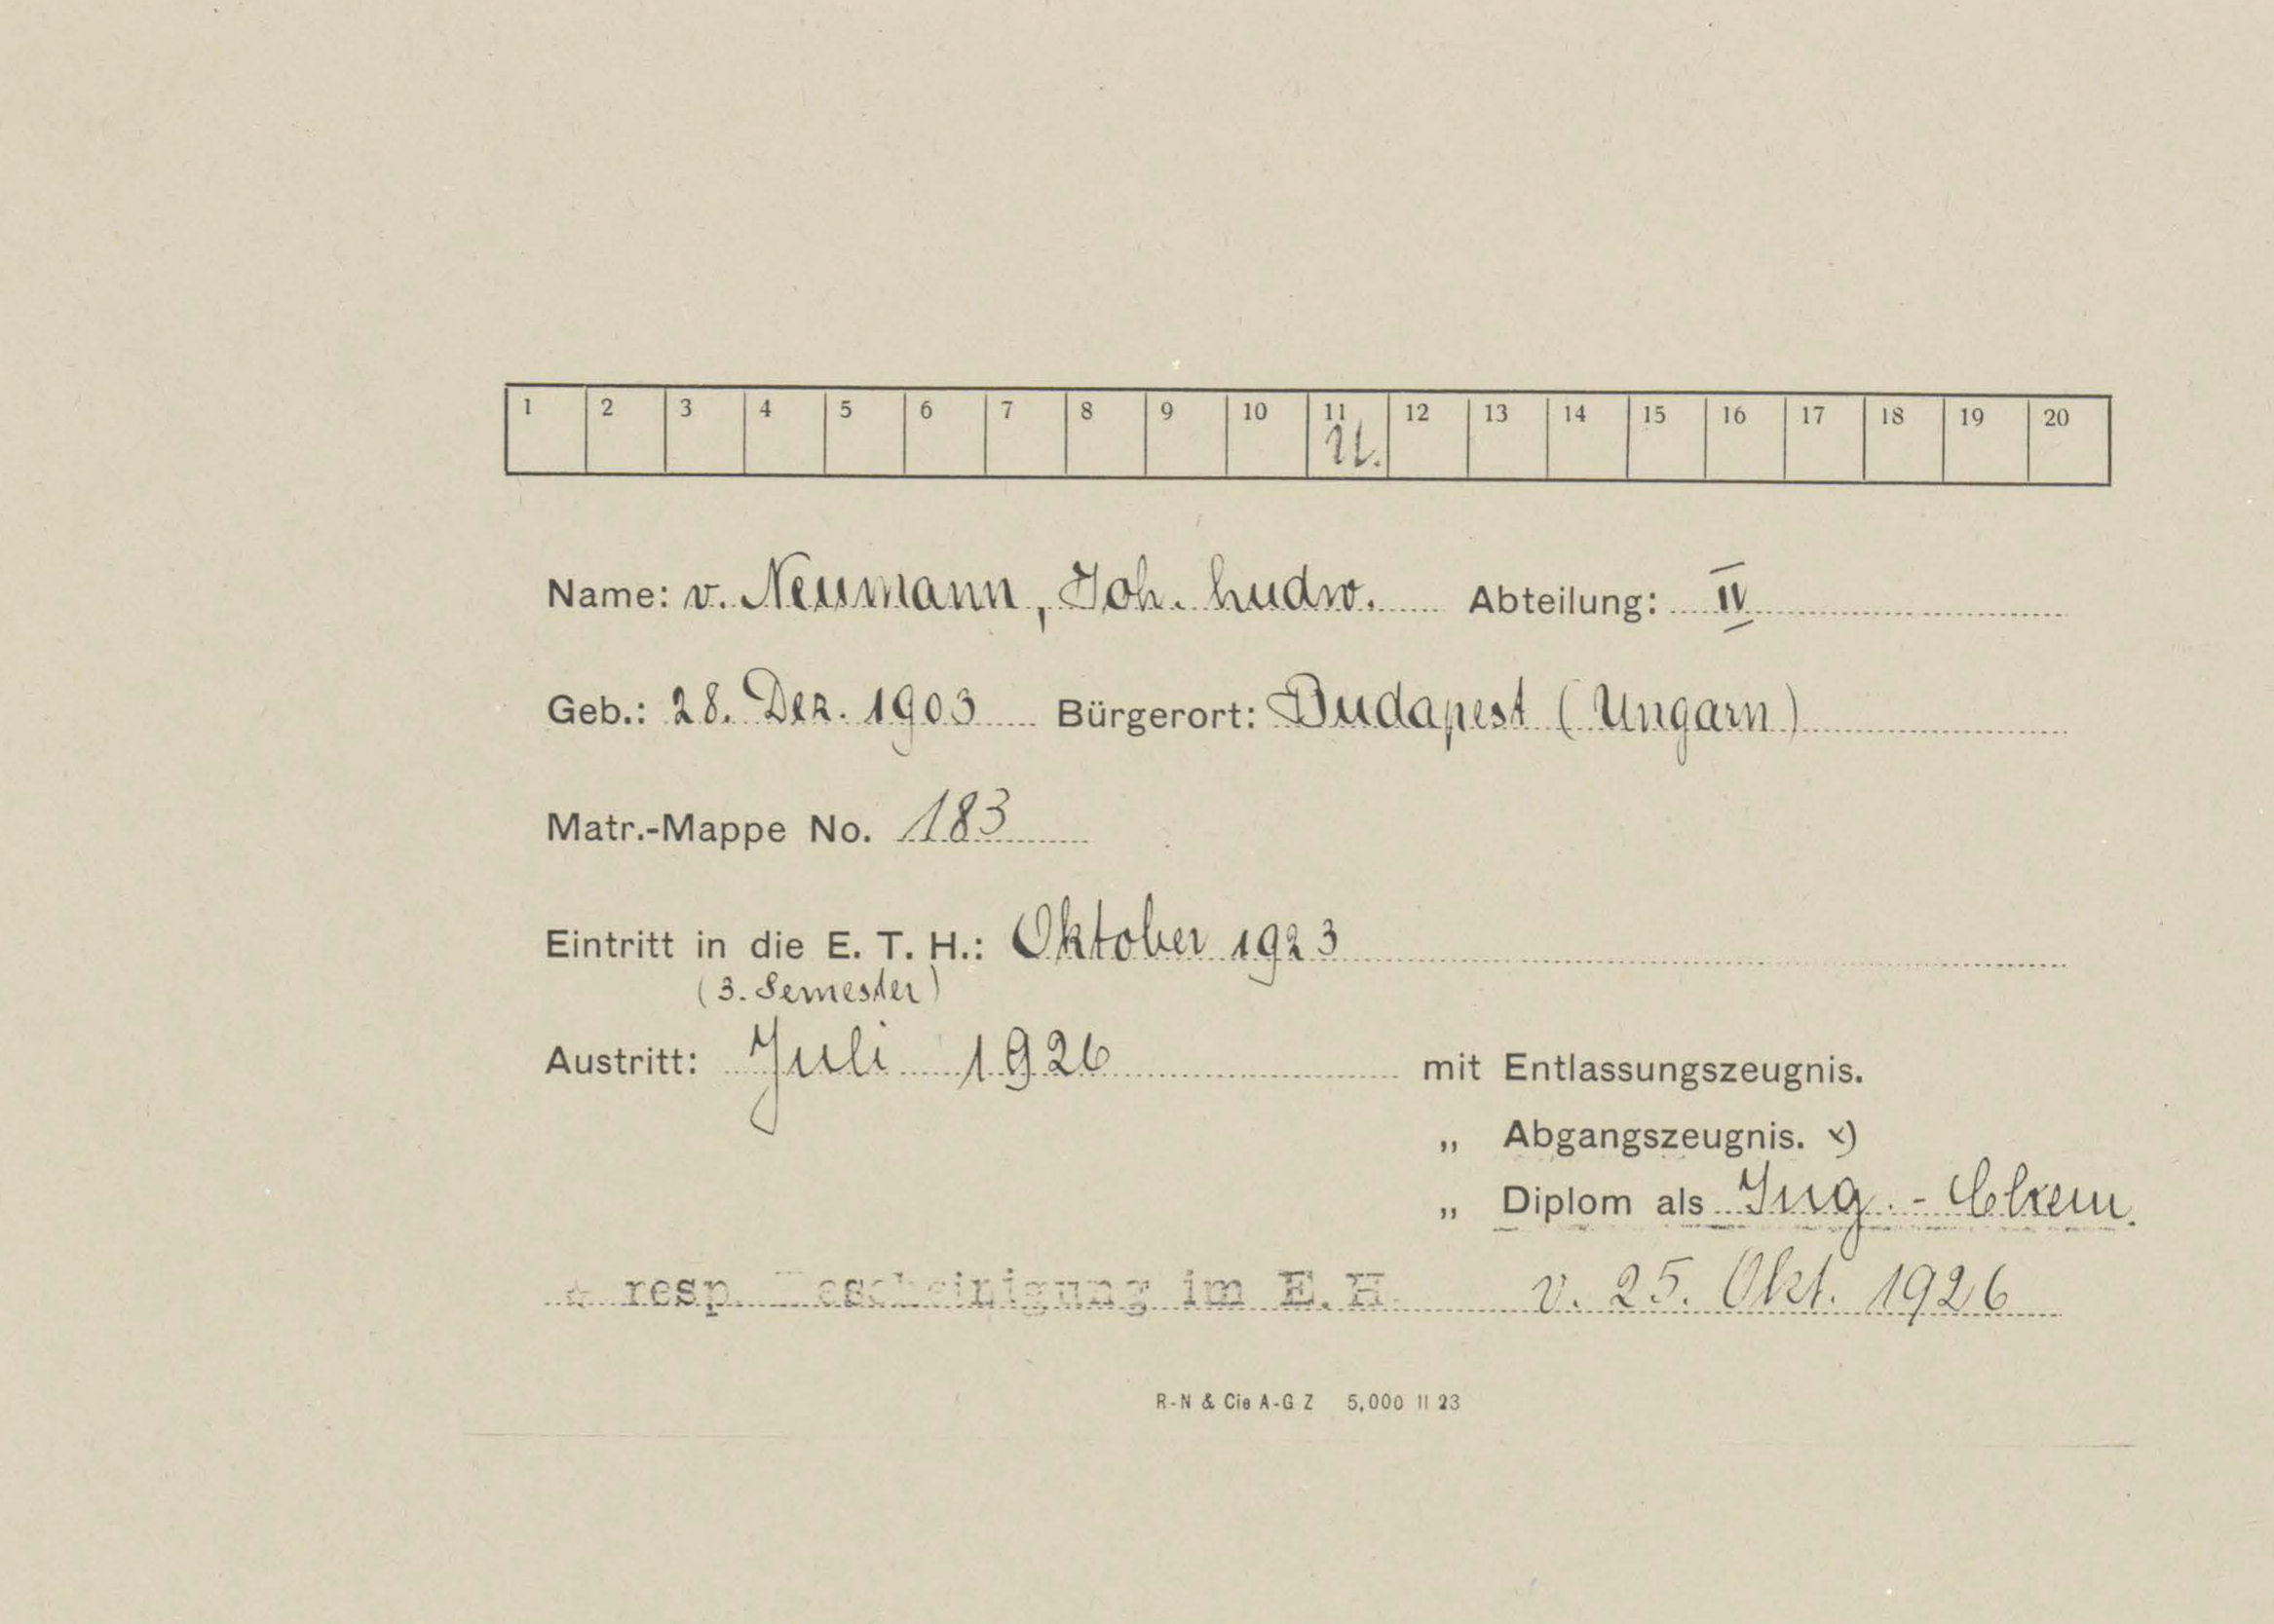 1 2 3 4 5 6 7 8 9 10 11 12 13 14 15 16 17 18 19 20
U.
Name: v. Neumann, Joh. Ludw. Abteilung: IV
Geb.: 28. Dez. 1903 Bürgerort: Budapest (Ungarn)
Matr.-Mappe No. 183
Eintritt in die E. T. H.: Oktober 1923
(3. Semester)
Austritt: Juli 1926 mit Entlassungszeugnis.
„ Abgangszeugnis. x)
„ Diplom als Ing.-Chem.
* resp. Bescheinigung im E.H. v. 25. Okt. 1926
R-N & Cie A-G Z 5,000 II 23